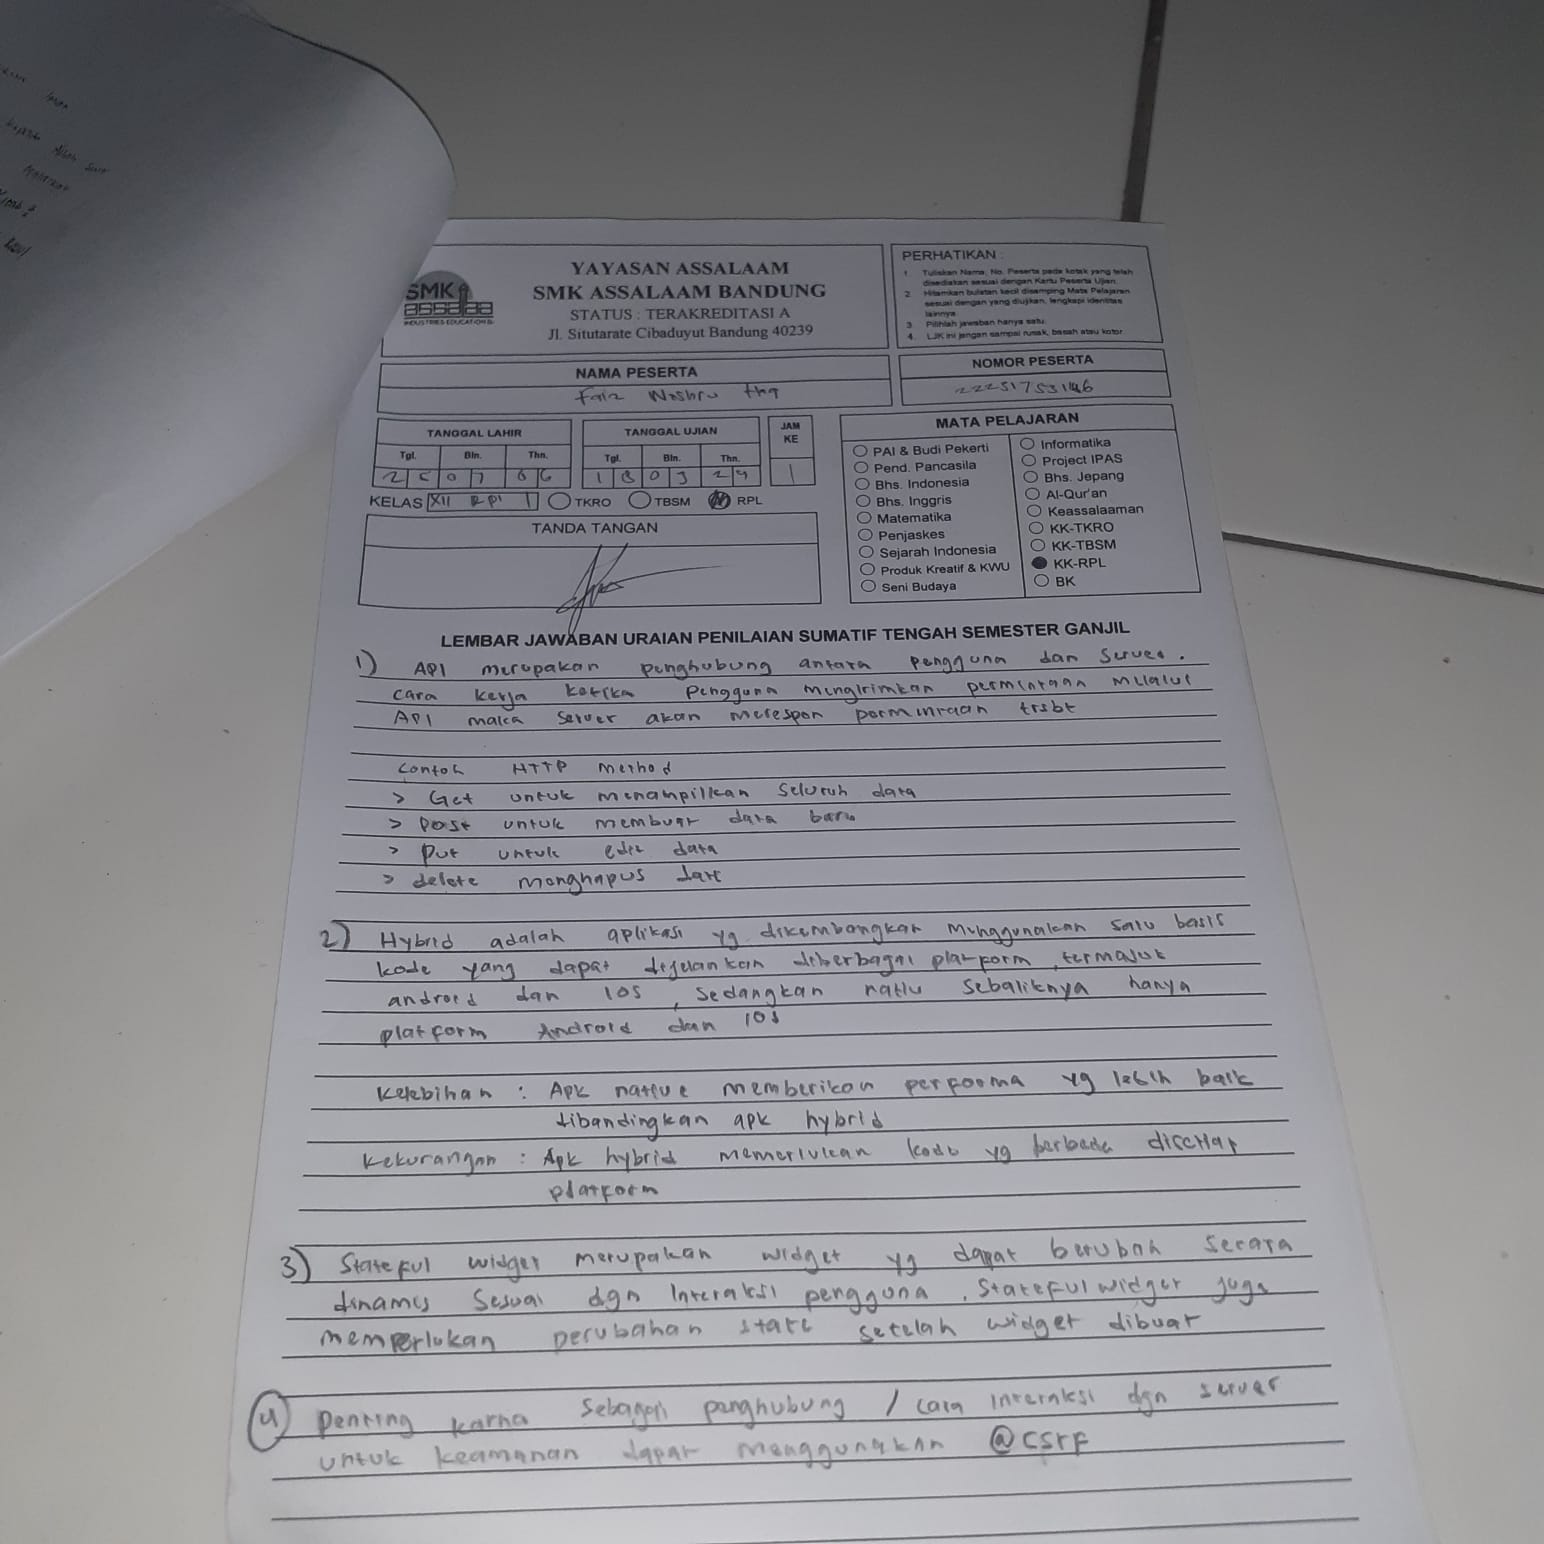 YAYASAN ASSALAAM
SMK ASSALAAM BANDUNG
STATUS : TERAKREDITASI A
Jl. Situtarate Cibaduyut Bandung 40239
SMK
assalaam
INDUSTRIES EDUCATION
PERHATIKAN :
1 Tuliskan Nama, No. Peserta pada kotak yang telah
disediakan sesuai dengan Kartu Peserta Ujian.
2 Hitamkan bulatan kecil disamping Mata Pelajaran
sesuai dengan yang diujikan, lengkapi identitas
lainnya
3 Pilihlah jawaban hanya satu.
4. LJK ini jangan sampai rusak, basah atau kotor
NAMA PESERTA
Faiz Washru tha
NOMOR PESERTA
TANGGAL LAHIR
Tgl. Bln. Thn.
2 5 0 7 0 6
TANGGAL UJIAN
Tgl. Bln. Thn.
1 8 0 3 2 4
JAM
KE
1
KELAS XII RPl 1 TKRO TBSM RPL
TANDA TANGAN
MATA PELAJARAN
PAI & Budi Pekerti
Pend. Pancasila
Bhs. Indonesia
Bhs. Inggris
Matematika
Penjaskes
Sejarah Indonesia
Produk Kreatif & KWU
Seni Budaya
Informatika
Project IPAS
Bhs. Jepang
Al-Qur'an
Keassalaaman
KK-TKRO
KK-TBSM
KK-RPL
BK
LEMBAR JAWABAN URAIAN PENILAIAN SUMATIF TENGAH SEMESTER GANJIL
1) API merupakan penghubung antara pengguna dan Server.
cara kerja ketika pengguna mengirimkan permintaan melalui
API maka server akan merespon permintaan trsbt
contoh HTTP method
> Get untuk menampilkan seluruh data
> Post untuk membuat data baru
> Put untuk edit data
> delete menghapus date
2) Hybrid adalah aplikasi yg dikembangkan menggunakan satu basis
kode yang dapat dijelankan diberbagai platform, termasuk
android dan IOS, Sedangkan nativ sebaliknya hanya
platform Android dan IOS
Kelebihan : Apk native memberikan perfooma yg lebih baik
dibandingkan apk hybrid
Kekurangan : Apk hybrid memerlukan kode yg berbeda disetiap
platform
3) Stateful widget merupakan widget yg dapat berubah secara
dinamis Sesuai dgn Interaksi pengguna, Stateful widget juga
memperlukan perubahan state setelah widget dibuat
4) Penting karna sebagai penghubung / cara interaksi dgn server
untuk keamanan dapat menggunakan @csrf